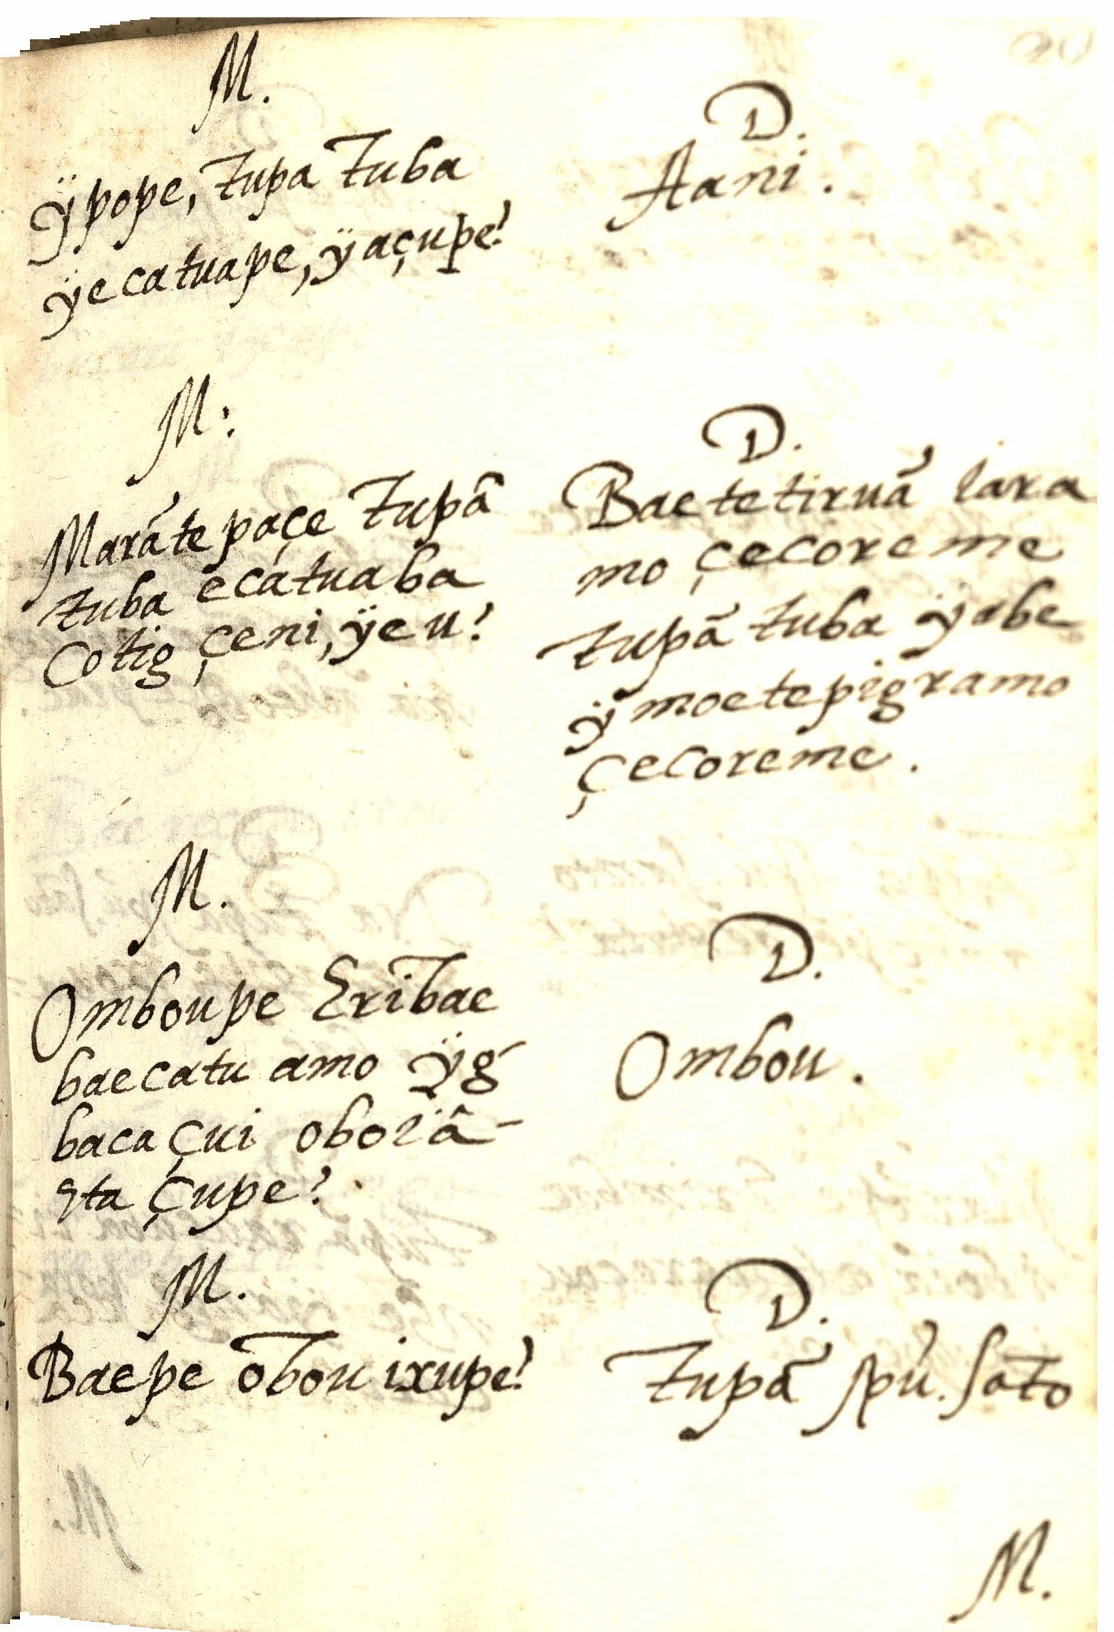 M.
ÿpope, tupa tuba
ÿecatuape, ÿaçupe?
D.
Aani.
M:
Marãte paçe tupâ
tuba ecatuaba
Cotig çeni, ÿeu?
D.
Baetetiruã iara
mo çecoreme
tupã tuba ÿabe
ÿmoetepigramo
çecoreme.
M.
Omboupe Eribae
baecatu amo ÿg-
baca çui oboiâ-
eta çupe?
D.
Ombou.
M.
Baepe obou ixupe?
D.
tupã spũ. sãto
M.